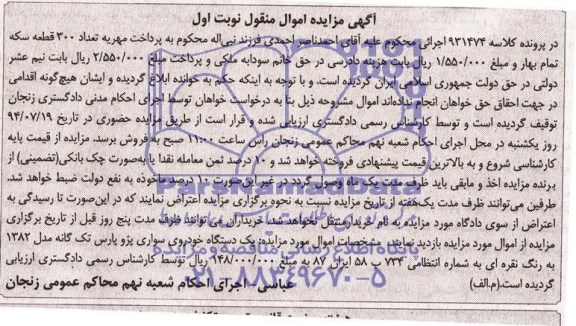 آگهی مزایده اموال منقول نوبت اول
در پرونده کلاسه ۹۳۱۴۷۴ اجرائی محکوم علیه آقای احمدناصر احمدی فرزند نبی‌اله محکوم به پرداخت مهریه تعداد ۳۰۰ قطعه سکه
تمام بهار و مبلغ ۱/۵۵۰/۰۰۰ ریال بابت هزینه دادرسی در حق خانم سودابه ملکی و پرداخت مبلغ ۲/۵۵۰/۰۰۰ ریال بابت نیم عشر
دولتی در حق دولت جمهوری اسلامی ایران گردیده است. و با توجه به اینکه حکم به خوانده ابلاغ گردیده و ایشان هیچ‌گونه اقدامی
در جهت احقاق حق خواهان انجام نداده‌اند اموال مشروحه ذیل بنا به درخواست خواهان توسط اجرای احکام مدنی دادگستری زنجان
توقیف گردیده است و توسط کارشناس رسمی دادگستری ارزیابی شده و قرار است از طریق مزایده حضوری در تاریخ ۹۴/۰۷/۱۹
روز یکشنبه در محل اجرای احکام شعبه نهم محاکم عمومی زنجان راس ساعت ۱۱:۰۰ صبح به فروش برسد. مزایده از قیمت پایه
کارشناسی شروع و به بالاترین قیمت پیشنهادی فروخته خواهد شد و ۱۰ درصد ثمن معامله نقدا یا به‌صورت چک بانکی(تضمینی) از
برنده مزایده اخذ و مابقی باید ظرف مدت یک ماه وصول گردد در غیر این‌صورت ۱۰ درصد ماخوذه به نفع دولت ضبط خواهد شد.
طرفین می‌توانند ظرف مدت یک‌هفته از تاریخ مزایده نسبت به نحوه برگزاری مزایده اعتراض نمایند که در این‌صورت تا رسیدگی به
اعتراض از سوی دادگاه مورد مزایده به نام خریدار منتقل نخواهد شد. خریداران می‌توانند ظرف مدت پنج روز قبل از تاریخ برگزاری
مزایده از اموال مورد مزایده بازدید نمایند. مشخصات اموال مورد مزایده یک دستگاه خودروی سواری پژو پارس تک گانه مدل ۱۳۸۲
به رنگ نقره ای به شماره انتظامی ۷۳۴ ب ۵۸ ایران ۸۷ به مبلغ ۱۴۸/۰۰۰/۰۰۰ ریال توسط کارشناس رسمی دادگستری ارزیابی
گردیده است.(م.الف)
عباسی - اجرای احکام شعبه نهم محاکم عمومی زنجان
پایگاه اطلاع رسانی مناقصه و مزایده
۰۲۱-۸۸۳۴۹۶۷۰-۵